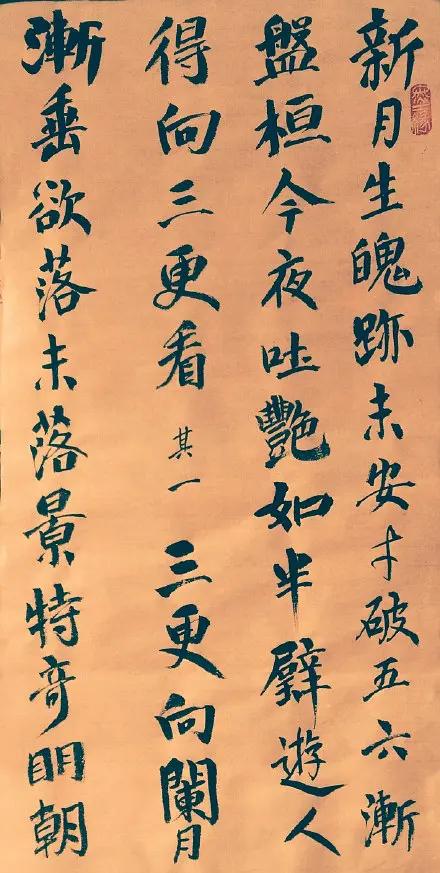 新月生魄跡未安才破五六漸
盤桓今夜吐豔如半璧遊人
得向三更看 其一 三更向闌月
漸垂欲落未落景特奇明朝